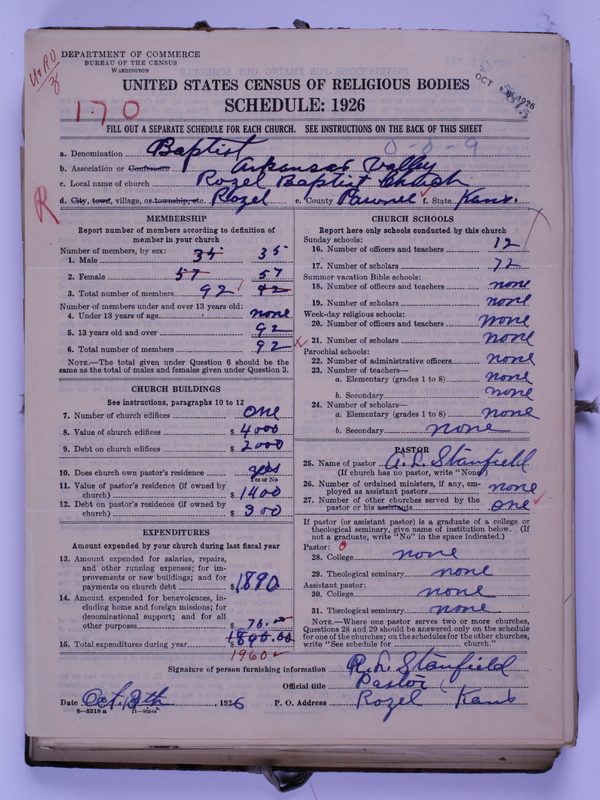 DEPARTMENT OF COMMERCE
BUREAU OF THE CENSUS
WASHINGTON
UNITED STATES CENSUS OF RELIGIOUS BODIES
SCHEDULE: 1926
170
OCT 1926
FILL OUT A SEPARATE SCHEDULE FOR EACH CHURCH. SEE INSTRUCTIONS ON THE BACK OF THIS SHEET
0-0-9
a. Denomination Baptist
b. Association or Conference Arkansas Valley
c. Local name of church Rozel Baptist Church
d. City, town, village, or township, etc. Rozel e. County Pawnee f. State Kans.
R
MEMBERSHIP
Report number of members according to definition of member in your church
Number of members, by sex:
1. Male 35 35
2. Female 57 57
3. Total number of members 92 92
Number of members under and over 13 years old:
4. Under 13 years of age none
5. 13 years old and over 92
6. Total number of members 92
NOTE.—The total given under Question 6 should be
same as the total of males and females given under Question 3.
CHURCH BUILDINGS
See instructions, paragraphs 10 to 12
7. Number of church edifices one
8. Value of church edifices $ 4000
9. Debt on church edifices $ 2000
10. Does church own pastor's residence yes
Yes or No
11. Value of pastor's residence (if owned by
church) $ 1400
12. Debt on pastor's residence (if owned by
church) $ 300
EXPENDITURES
Amount expended by your church during last fiscal year
13. Amount expended for salaries, repairs,
and other running expenses; for im-
provements or new buildings; and for
payments on church debt $ 1890
14. Amount expended for benevolences, in-
cluding home and foreign missions; for
denominational support; and for all
other purposes $ 70.00
15. Total expenditures during year $
1960
CHURCH SCHOOLS
Report here only schools conducted by this church
Sunday schools:
16. Number of officers and teachers 12
17. Number of scholars 72
Summer vacation Bible schools:
18. Number of officers and teachers none
19. Number of scholars none
Week-day religious schools:
20. Number of officers and teachers none
21. Number of scholars none
Parochial schools:
22. Number of administrative officers none
23. Number of teachers—
a. Elementary (grades 1 to 8) none
b. Secondary none
24. Number of scholars—
a. Elementary (grades 1 to 8) none
b. Secondary none
PASTOR
25. Name of pastor A. L. Stanfield
(If church has no pastor, write "None")
26. Number of ordained ministers, if any, em-
ployed as assistant pastors none
27. Number of other churches served by the
pastor or his assistants one
If pastor (or assistant pastor) is a graduate of a college or
theological seminary, give name of institution below. (If
not a graduate, write "No" in the space indicated.)
Pastor: 0
28. College none
29. Theological seminary none
Assistant pastor:
30. College none
31. Theological seminary none
NOTE.—Where one pastor serves two or more churches,
Questions 28 and 29 should be answered only on the schedule
for one of the churches; on the schedules for the other churches,
write "See schedule for church."
Signature of person furnishing information A. L. Stanfield
Official title Pastor
Date Oct. , 1926 P. O. Address Rozel Kans
8—5518 a